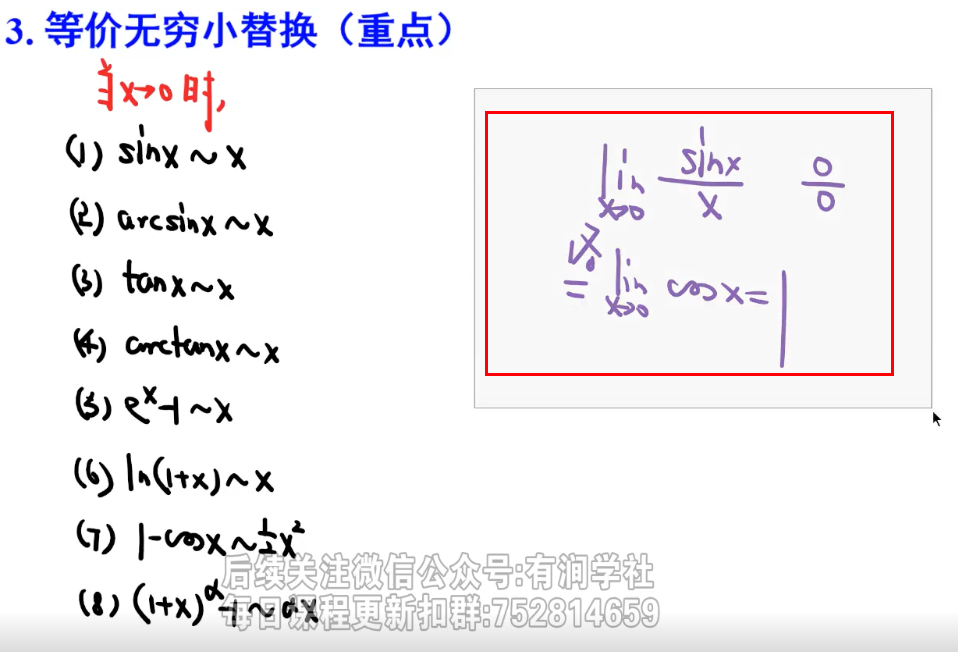 3. 等价无穷小替换（重点）
当x→0时,
(1) sinx ~ x
(2) arcsinx ~ x
(3) tanx ~ x
(4) arctanx ~ x
(5) eˣ-1 ~ x
(6) ln(1+x) ~ x
(7) 1-cosx ~ 1/2 x²
(8) (1+x)^α-1 ~ αx
lim x→0 sinx/x 0/0
= lim x→0 cosx = 1
后续关注微信公众号:有润学社
每日课程更新扣群:752814659